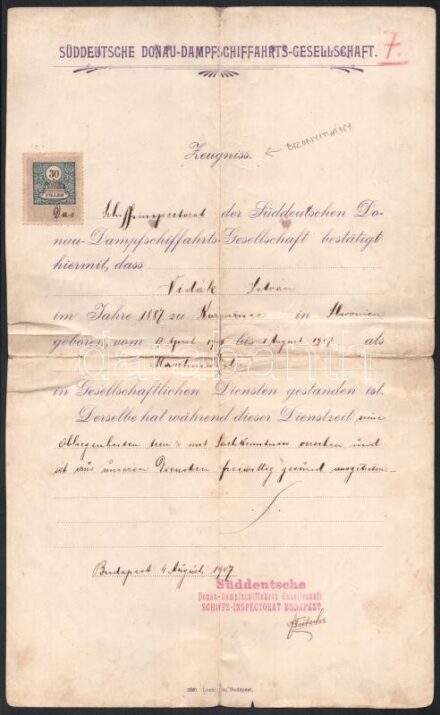 SÜDDEUTSCHE DONAU-DAMPFSCHIFFAHRTS-GESELLSCHAFT.
7.
Zeugniss.
← BIZONYITVÁNY
30
FILLÉR
Das Schiffsinspectorat der Süddeutschen Do-
nau-Dampfschiffahrts-Gesellschaft bestätigt
hiermit, dass
Vidák István
im Jahre 1887 zu in Slavonien
geboren, vom April bis 1 August 1907 als
in Gesellschaftlichen Diensten gestanden ist.
Derselbe hat während dieser Dienstzeit seine
Obliegenheiten treu & mit Sachkenntniss versehen und
ist aus unseren Diensten freiwillig gesund ausgetreten.
Budapest 4 August 1907
Süddeutsche
Donau-Dampfschiffahrts Gesellschaft
SCHIFFS-INSPECTORAT BUDAPEST.
Budapest.
darabanth